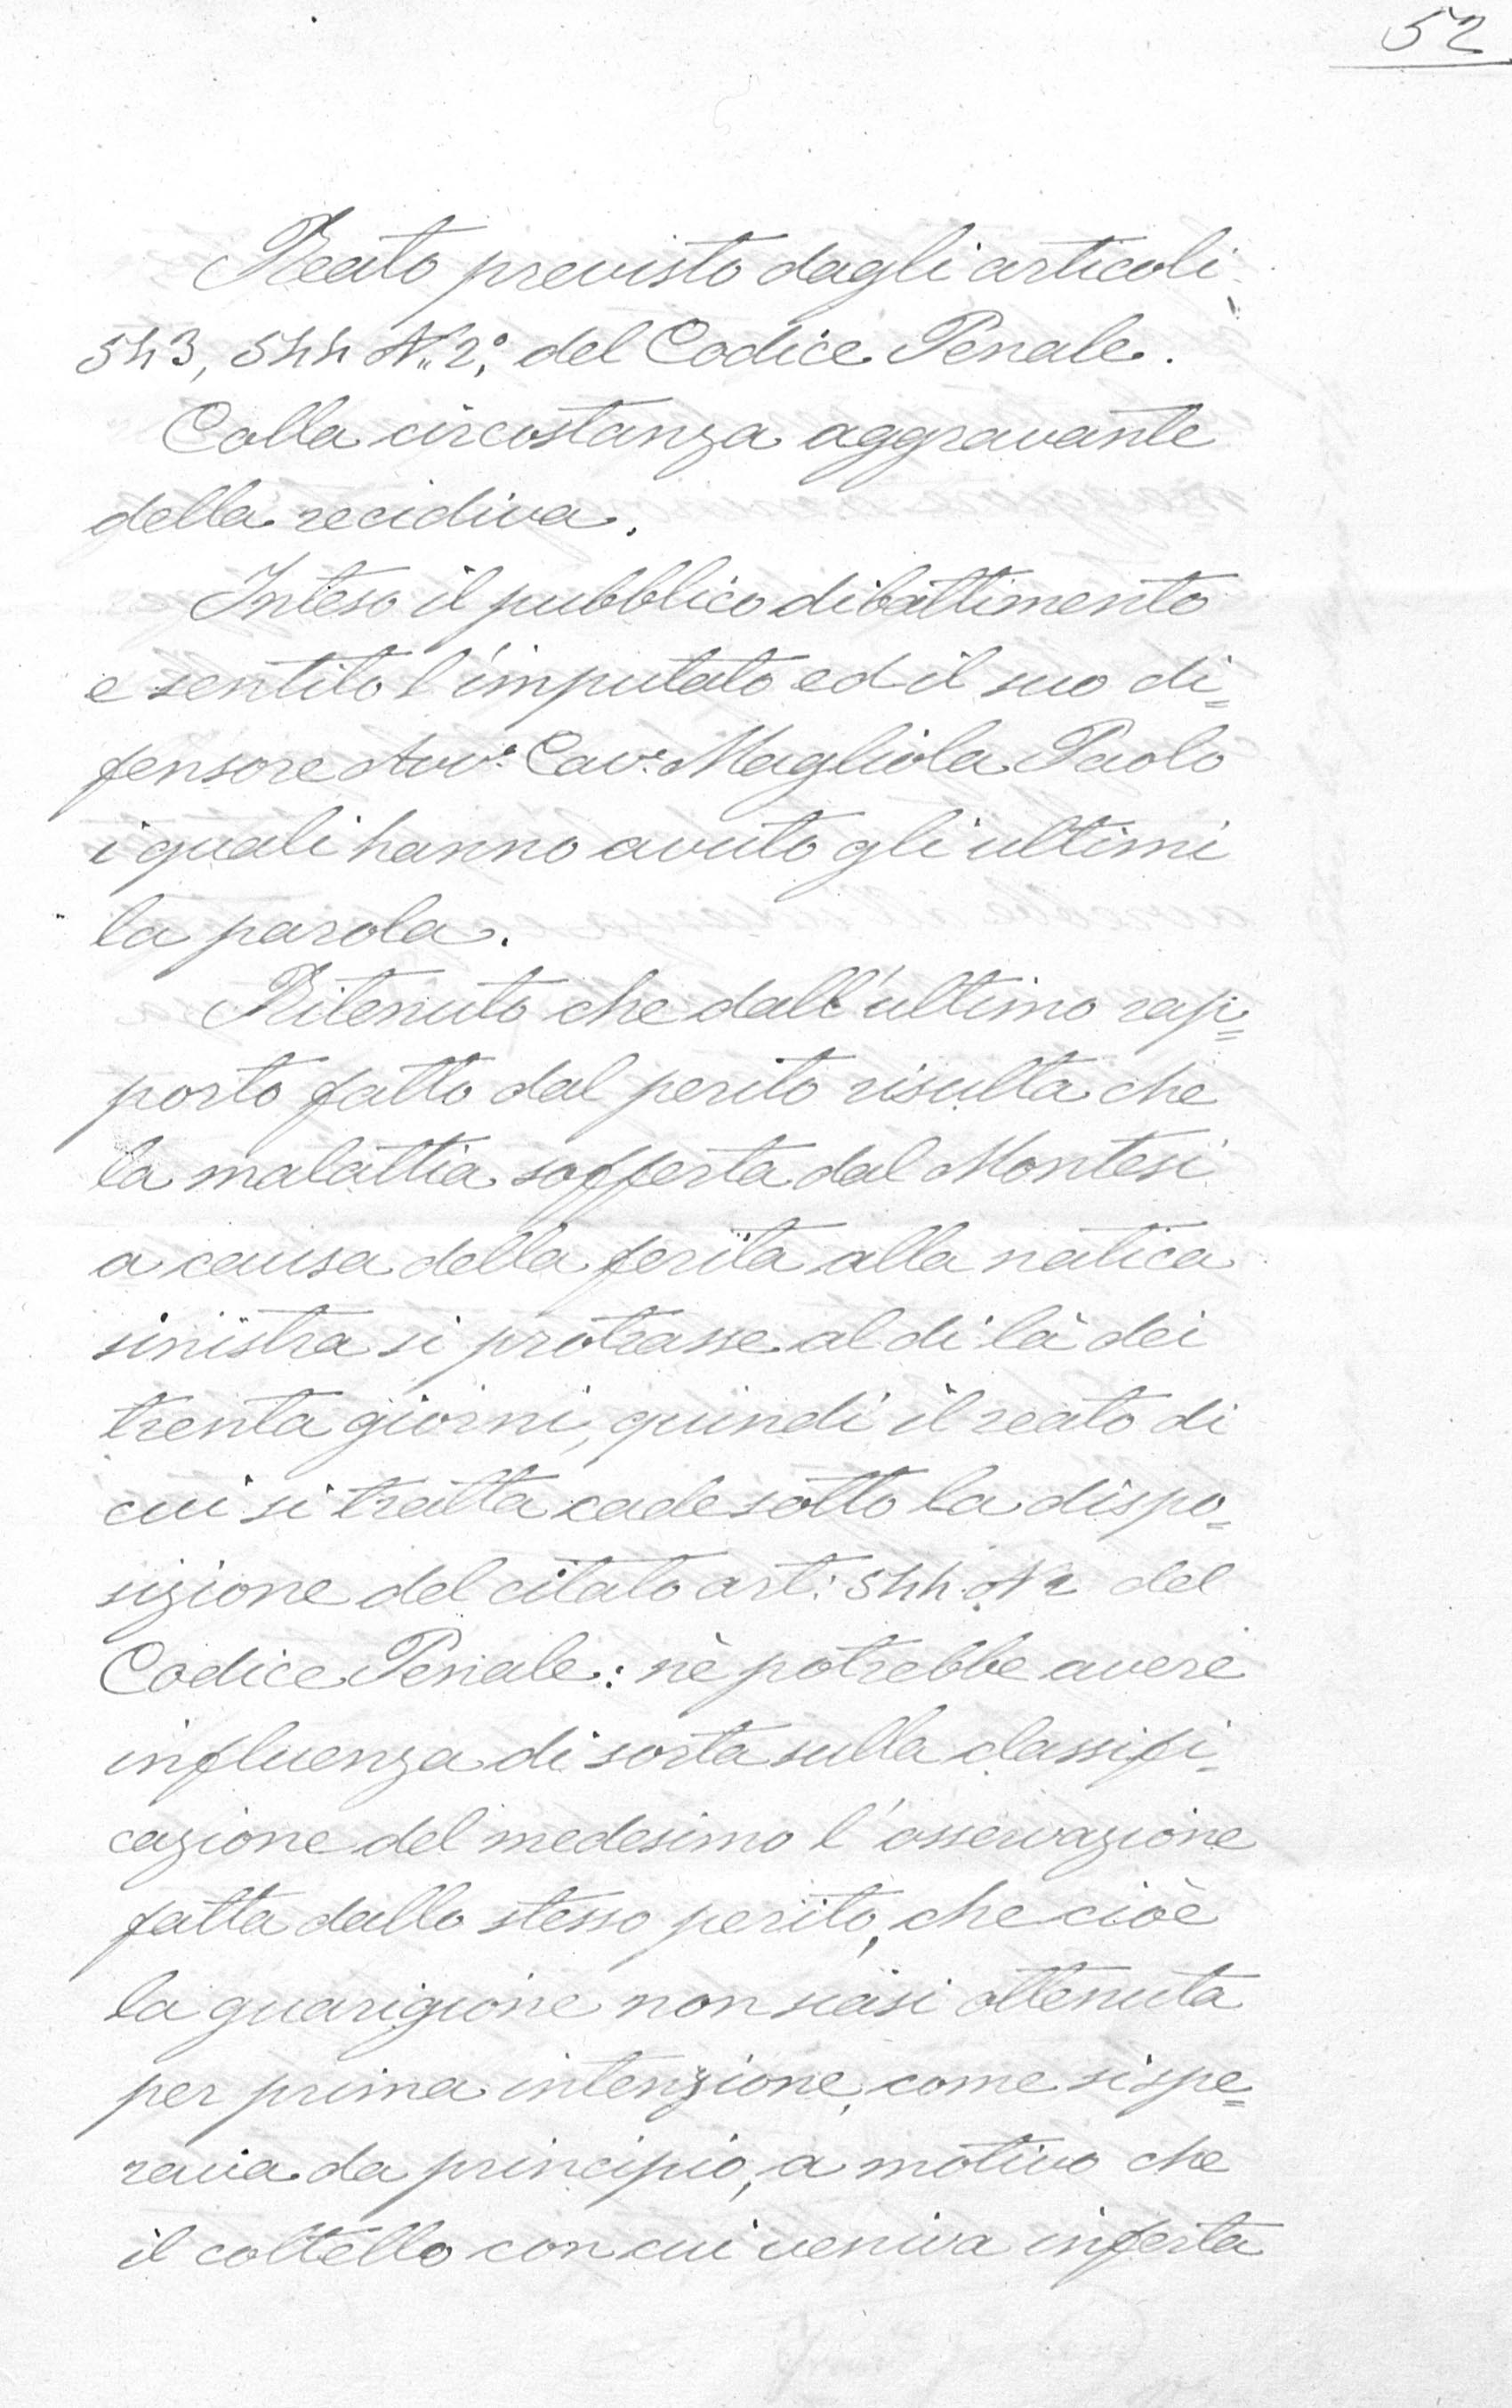 52
Reato previsto dagli articoli
543, 544 N.° 2,° del Codice Penale.
Colla circostanza aggravante
della recidiva.
Inteso il pubblico dibattimento
e sentito l'imputato ed il suo di=
fensore Avv.° Cav.e Magliola Paolo
i quali hanno avuto gli ultimi
la parola.
Ritenuto che dall'ultimo rap=
porto fatto dal perito risulta che
la malattia sofferta dal Montesi
a causa della ferita alla natica
sinistra si protrasse al di là dei
trenta giorni, quindi il reato di
cui si tratta cade sotto la dispo=
sizione del citato art: 544 N 2 del
Codice Penale: nè potrebbe avere
influenza di sorta sulla classifi=
cazione del medesimo l'osservazione
fatta dallo stesso perito, che cioè
la guarigione non siasi ottenuta
per prima intenzione, come si spe=
rava da principio, a motivo che
il coltello con cui veniva inferta